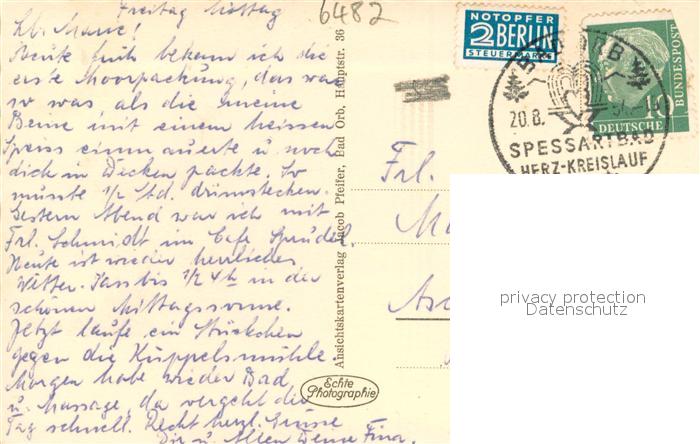 Freitag Mittag
6482
Lb. Marie!
Heute früh bekam ich die
erste Moorpackung, das war
so was als die meine
Beine mit einem heissen
Speiss einmauerte u. noch
dick in Decken packte. So
müsste 1/2 Std. drinnstecken.
Gestern Abend war ich mit
Frl. Schmidt im Cafe Sprudel.
Heute ist wieder herrliches
Wetter. Sass bis 1/2 4h in der
schönen Mittagssonne.
Jetzt laufe ein Stückchen
gegen die Küppelsmühle.
Morgen habe wieder Bad
u. Massage, da vergeht der
Tag schnell. Recht herzl. Grüsse
Dir u. Allen Deine
Ansichtskartenverlag Jacob Pfeifer, Bad Orb, Hauptstr. 36
Echte
Photographie
NOTOPFER
2 BERLIN
STEUERMARKE
DEUTSCHE
BUNDESPOST
10
BAD ORB
20.8.
SPESSARTBAD
HERZ-KREISLAUF
Frl.
privacy protection
Datenschutz